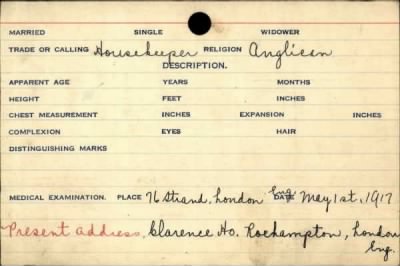 MARRIED SINGLE WIDOWER
TRADE OR CALLING Housekeeper RELIGION Anglican
DESCRIPTION.
APPARENT AGE YEARS MONTHS
HEIGHT FEET INCHES
CHEST MEASUREMENT INCHES EXPANSION INCHES
COMPLEXION EYES HAIR
DISTINGUISHING MARKS
MEDICAL EXAMINATION. PLACE 76 Strand, London Eng. DATE May 1st, 1917
Present address, Clarence Ho. Roehampton, London
Eng.